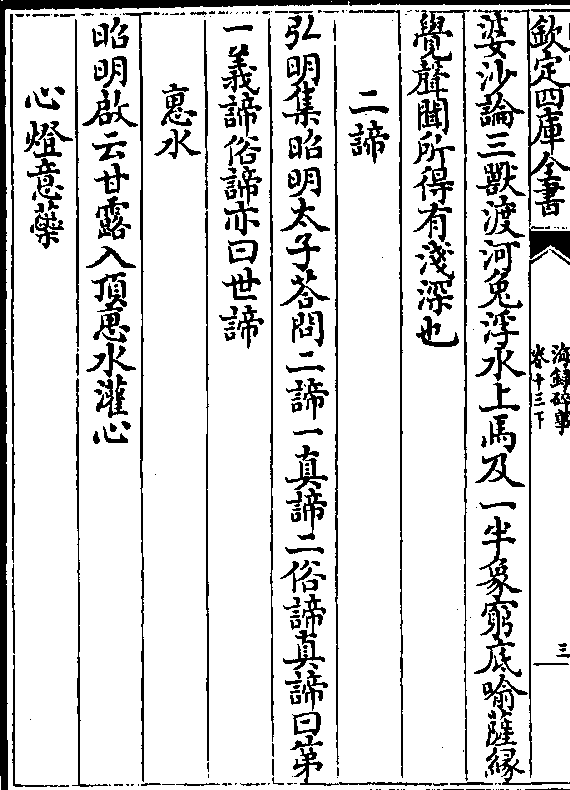 欽定四庫全書
海録碎事
卷十三下
三
婆沙論三獸渡河兔浮水上馬及一半象窮底喻薩縁
覺聲聞所得有淺深也
二諦
弘明集昭明太子荅問二諦一真諦二俗諦真諦曰第
一義諦俗諦亦曰世諦
恵水
昭明啟云甘露入頂恵水灌心
心燈意藥